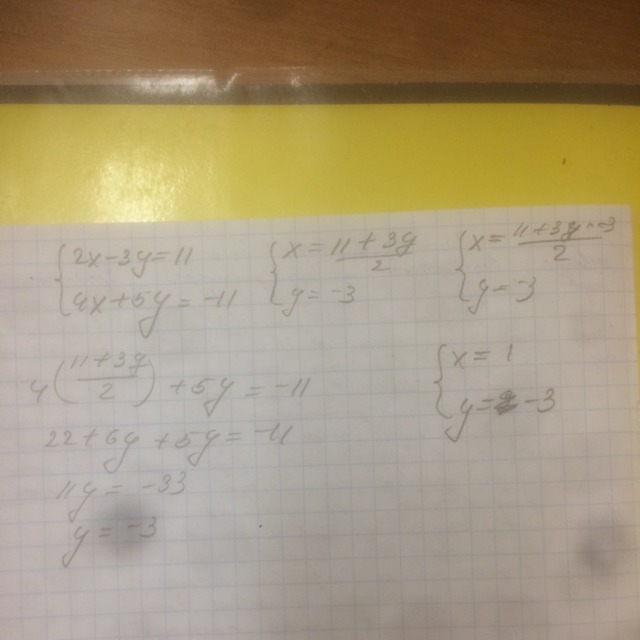 2x-3y=11
4x+5y=-11
x=11+3y/2
y=-3
x=11+3y·-3/2
y=-3
4(11+3y/2)+5y=-11
22+6y+5y=-11
11y=-33
y=-3
x=1
y=-3